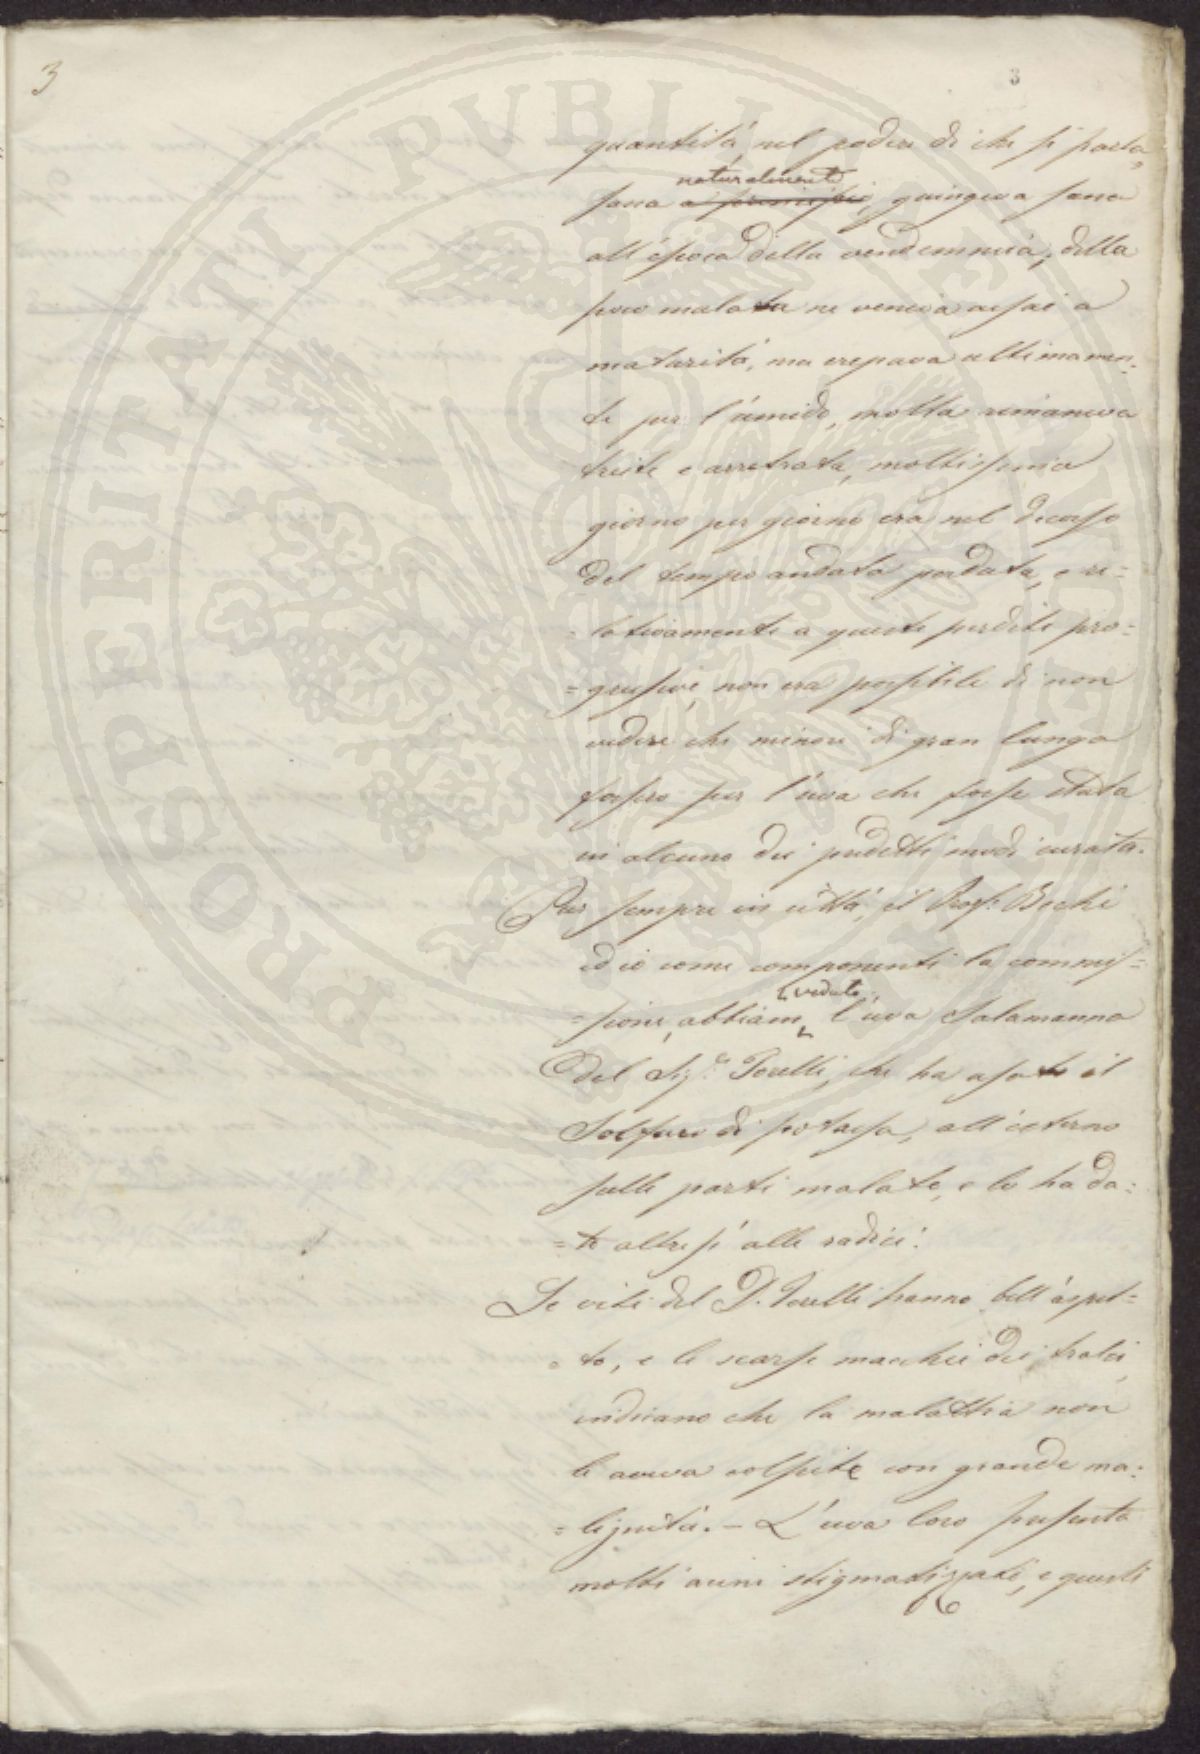 3
3
quantità, nel podere di che si parla,
naturalmente
sana a principio, giungeva sana
all'época della vendemmia; della
poco malata ne veniva assai a
maturità, ma crepava ultimamen=
te per l'umido, molta rimaneva
triste e arretrata, moltissima
giorno per giorno era nel decorso
del tempo andata perduta, e re=
=lativamente a queste perdite pro=
=gressive, non era possibile di non
vedere che minori di gran lunga
fossero per l'uva che fosse stata
in alcuno dei predetti modi curata.
Pur sempre in città, il Prof. Bechi
ed io come componenti la commis=
veduto
=sione, abbiam, l'uva Salamanna
del Sig.r Torelli, che ha usato il
Solfuro di potassa, all'esterno
sulle parti malate, e lo ha da=
=to altresì alle radici.
Le viti del D. Torelli hanno bell'aspet=
=to, e le scarse macchie dei tralci,
indicano che la malattia non
le aveva colpite con grande ma=
=lignità. – L'uva loro presenta
molti acini stigmatizzati, e questi
PROSPERITATI PUBLICAE